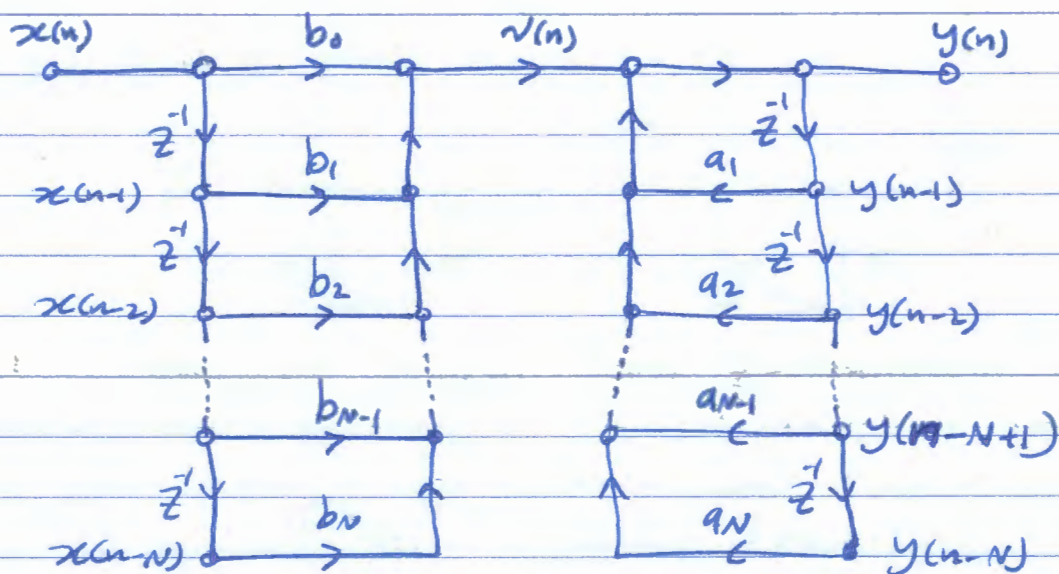 x(n) b₀ v(n) y(n)
z⁻¹ z⁻¹
x(n-1) b₁ a₁ y(n-1)
z⁻¹ z⁻¹
x(n-2) b₂ a₂ y(n-2)
b_{N-1} a_{N-1} y(n-N+1)
z⁻¹ z⁻¹
x(n-N) b_N a_N y(n-N)